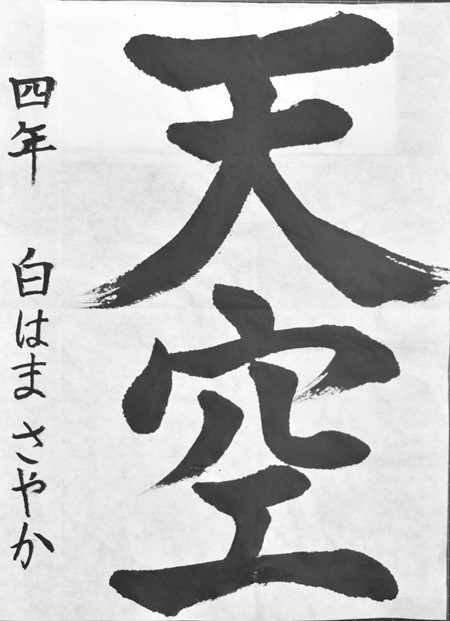 天空
四年 白はま さやか